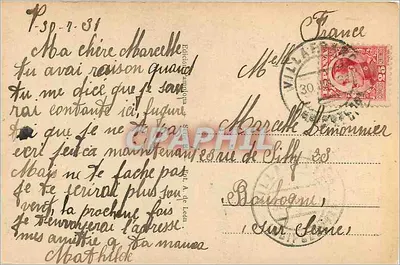 P. 30-7-31
Ma chère Marcelle
tu avai raison quand
tu me dice que je se
rai contante ici, figure
toi que je ne pas
ecri jenca maintenant
Mais ne te fache pas
je te ecrirai plus sou
vent, la prochene fois
je t'enverai l'adresse
mes amitie a ta maman
Mathilde
France
Melle
Marcelle Demonnier
rue de Silly 23
Boulogne
sur Seine
CPAPHIL
VILLAFRANCA
30
25